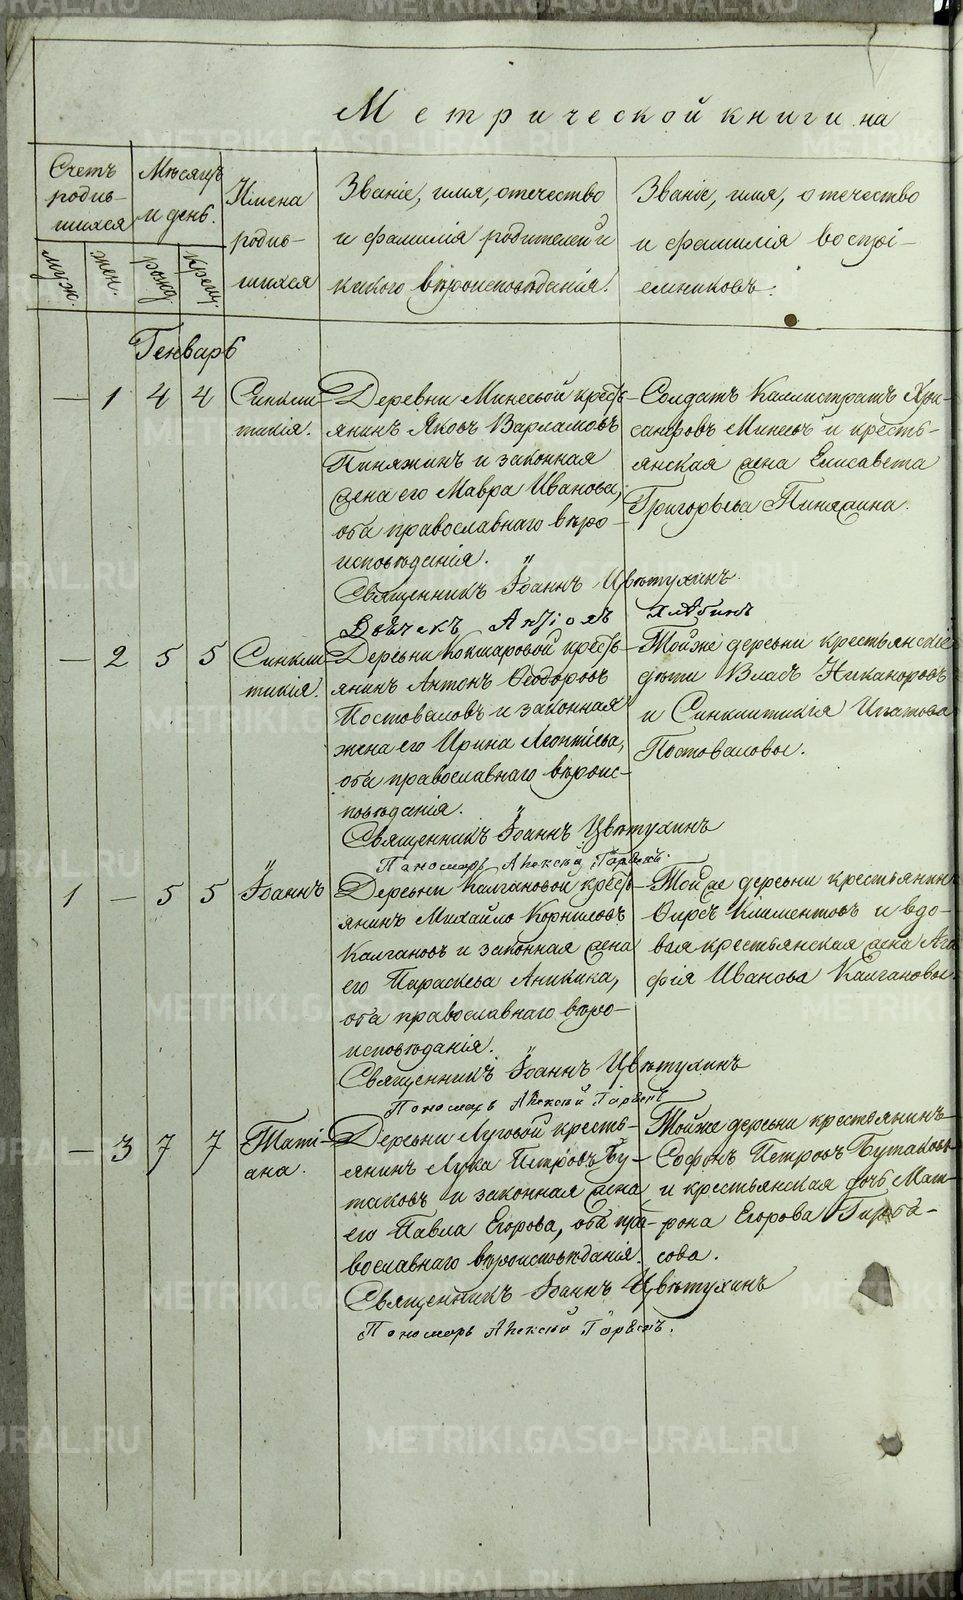 Метрической книги на
Счетъ родив-шихся
Мѣсяцъ и день.
Имена родив-шихся
Званіе, имя, отечество
и фамилія родителей и
какого вѣроисповѣданія.
Званіе, имя, отечество
и фамилія воспрі-
емниковъ.
муж.
жен.
рожд.
крещ.
Генварь
— 1 4 4
Синкли-
тикія.
Деревни Минеевой кресть-
янинъ Яковъ Варламовъ
Пиняжинъ и законная
жена его Мавра Иванова,
оба православнаго вѣро-
исповѣданія.
Священникъ Іоаннъ Цвѣтухинъ
Солдатъ Каллистратъ Хри-
санфовъ Минеевъ и кресть-
янская жена Елисавета
Григорьева Пиняжина.
— 2 5 5
Синкли-
тикія.
Деревни Кокшаровой кресть-
янинъ Антонъ Ѳеодоровъ
Постоваловъ и законная
жена его Ирина Леонтіева,
оба православнаго вѣроис-
повѣданія.
Священникъ Іоаннъ Цвѣтухинъ
Пономарь Алексѣй
Тойже деревни крестьянскіе
дѣти Власъ Никаноровъ
и Синклитикія Ипатова
Постоваловы.
1 — 5 5
Іоаннъ
Деревни Калгановой кресть-
янинъ Михайло Корниловъ
Калгановъ и законная жена
его Параскева Аникина,
оба православнаго вѣро-
исповѣданія.
Священникъ Іоаннъ Цвѣтухинъ
Пономарь Алексѣй
Той же деревни крестьянинъ
Ѳирсъ Климентовъ и вдо-
вая крестьянская жена Ага-
фія Иванова Калгановы.
— 3 7 7
Таті-
ана.
Деревни Луговой кресть-
янинъ Лука Петровъ Бу-
таковъ и законная жена
его Павла Егорова, оба пра-
вославнаго вѣроисповѣданія.
Священникъ Іоаннъ Цвѣтухинъ
Пономарь Алексѣй
Тойже деревни крестьянинъ
Софонъ Петровъ Бутаковъ
и крестьянская дочь Мат-
рона Егорова
сова.
METRIKI.GASO-URAL.RU